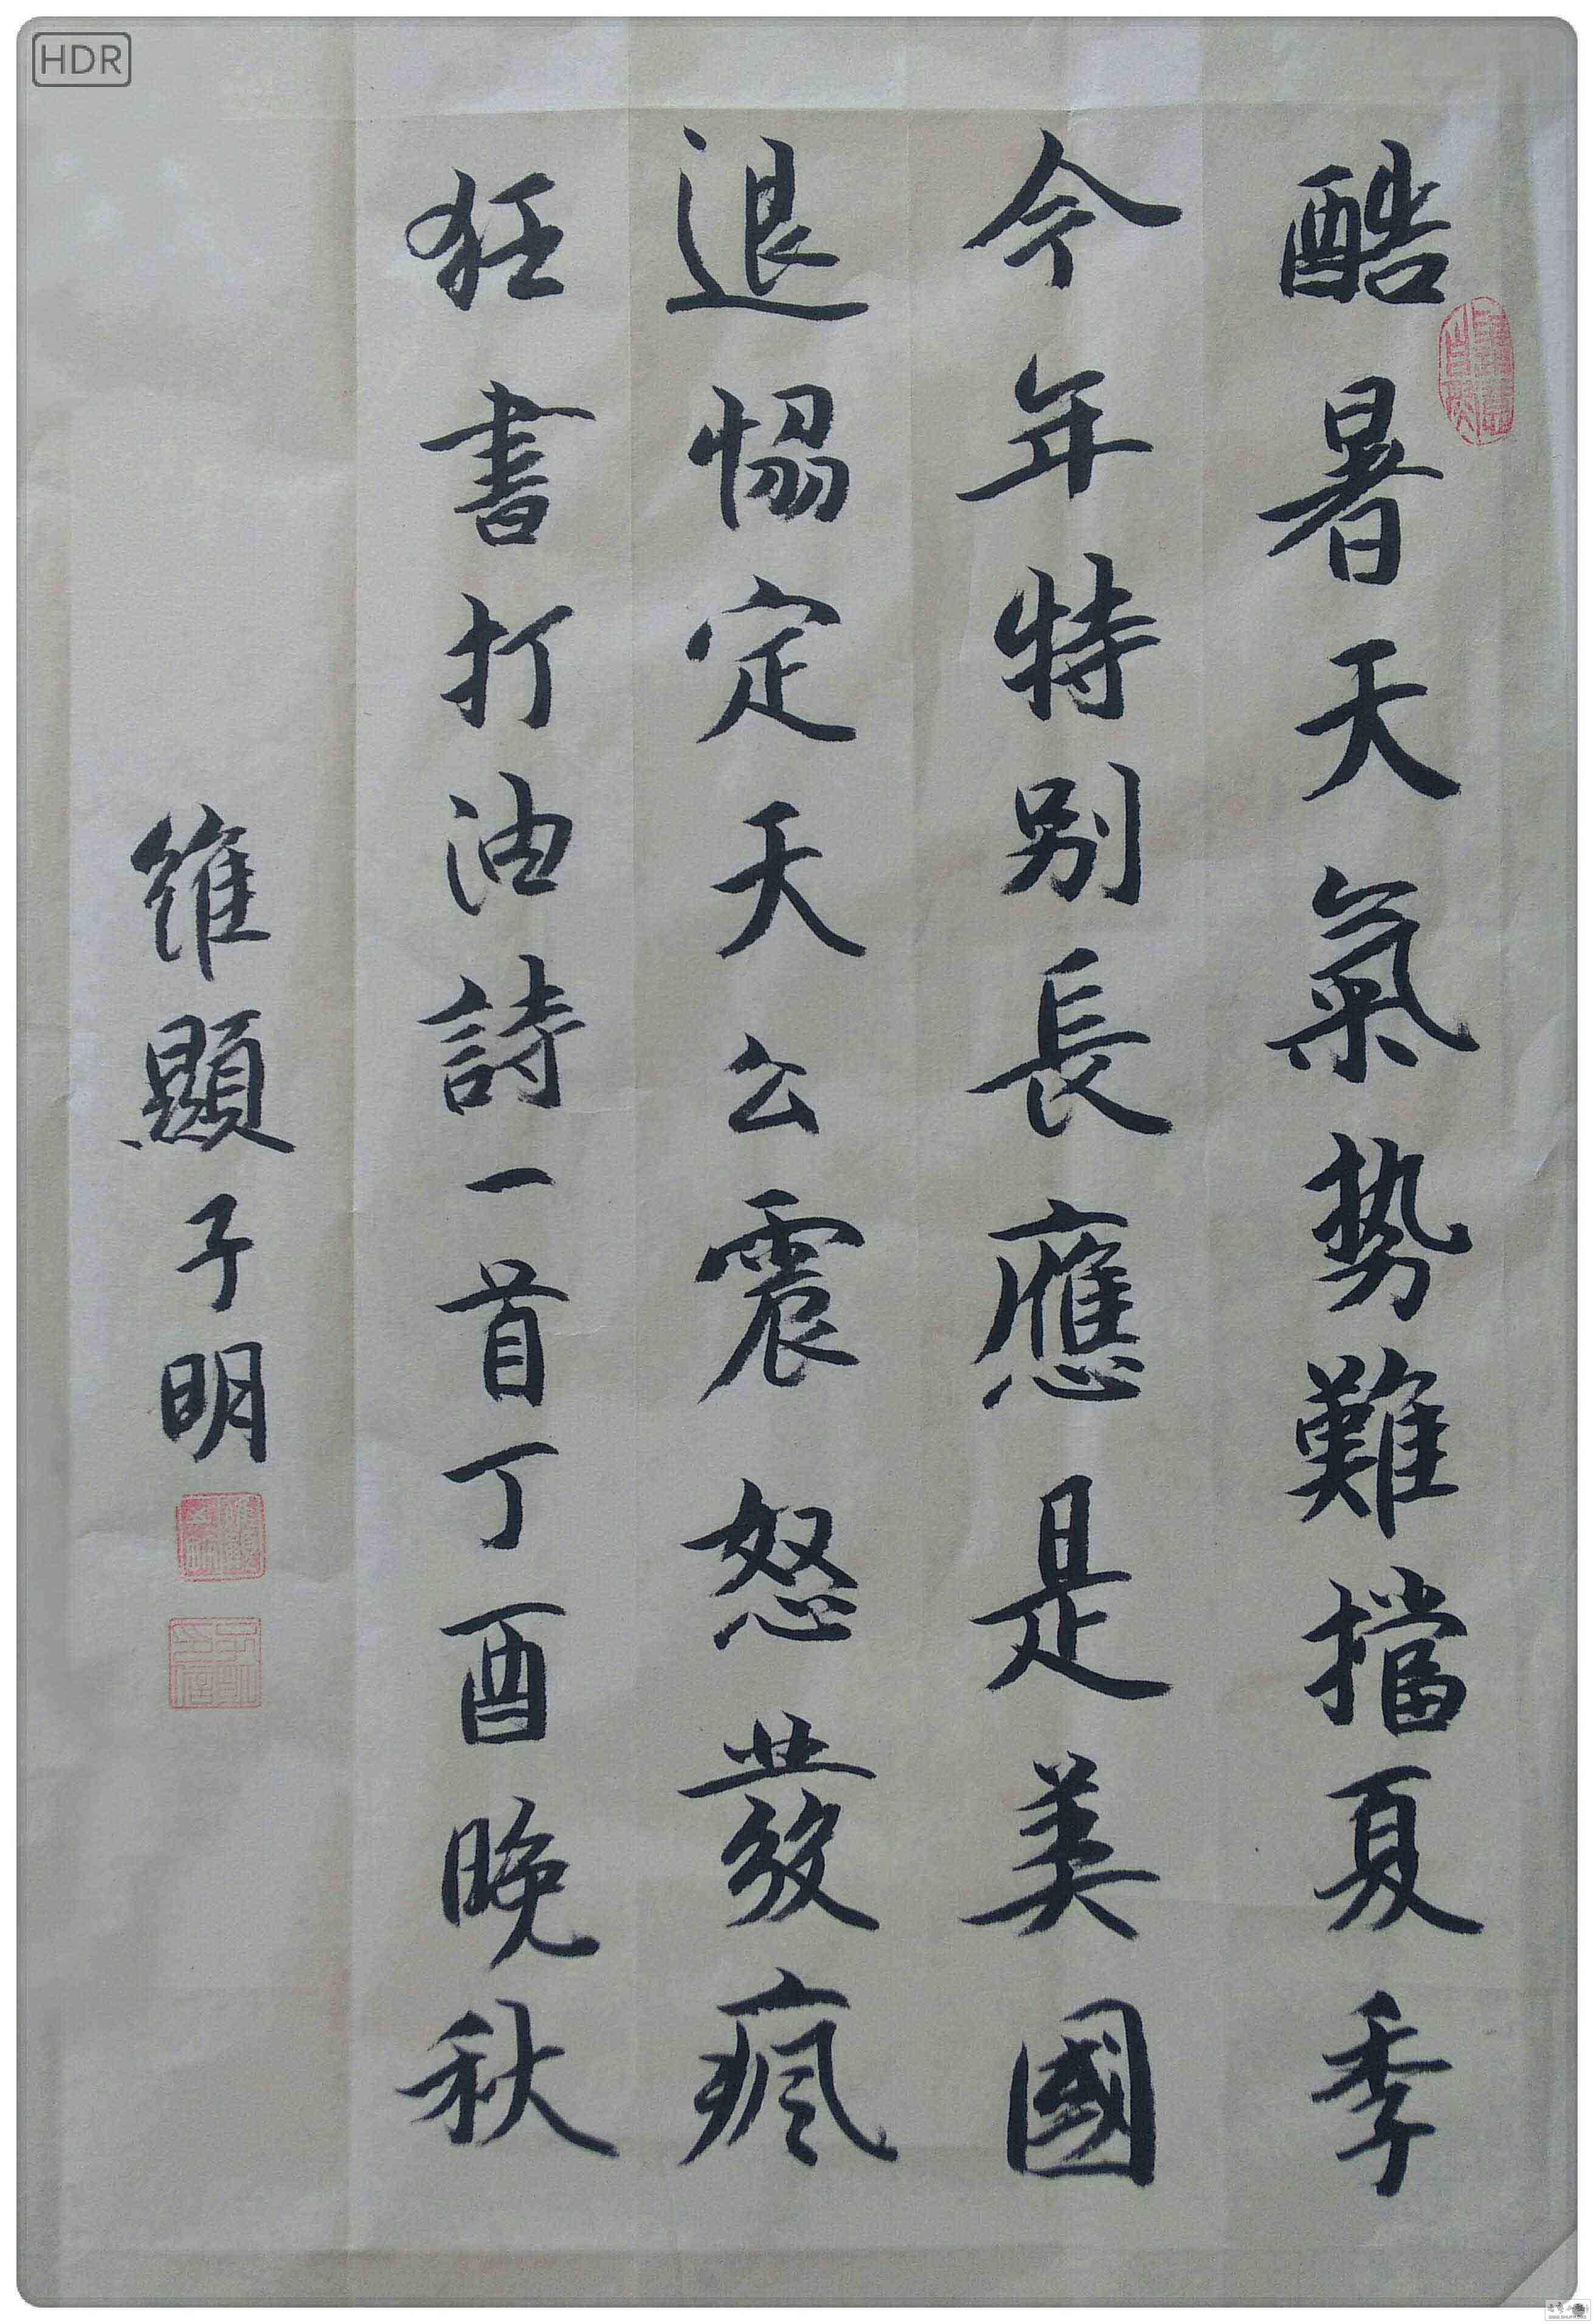 HDR
酷暑天氣勢難擋夏季
今年特别長應是美國
退惱定天公震怒發瘋
狂書打油詩一首丁酉晚秋
維顯子明